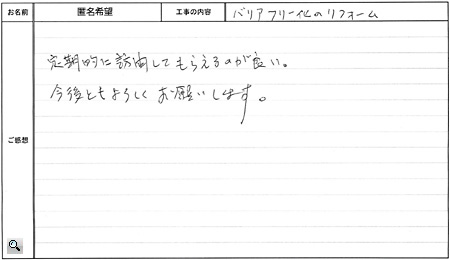 お名前 匿名希望 工事の内容 バリアフリー化のリフォーム
定期的に訪問してもらえるのが良い。
今後ともよろしくお願いします。
ご感想